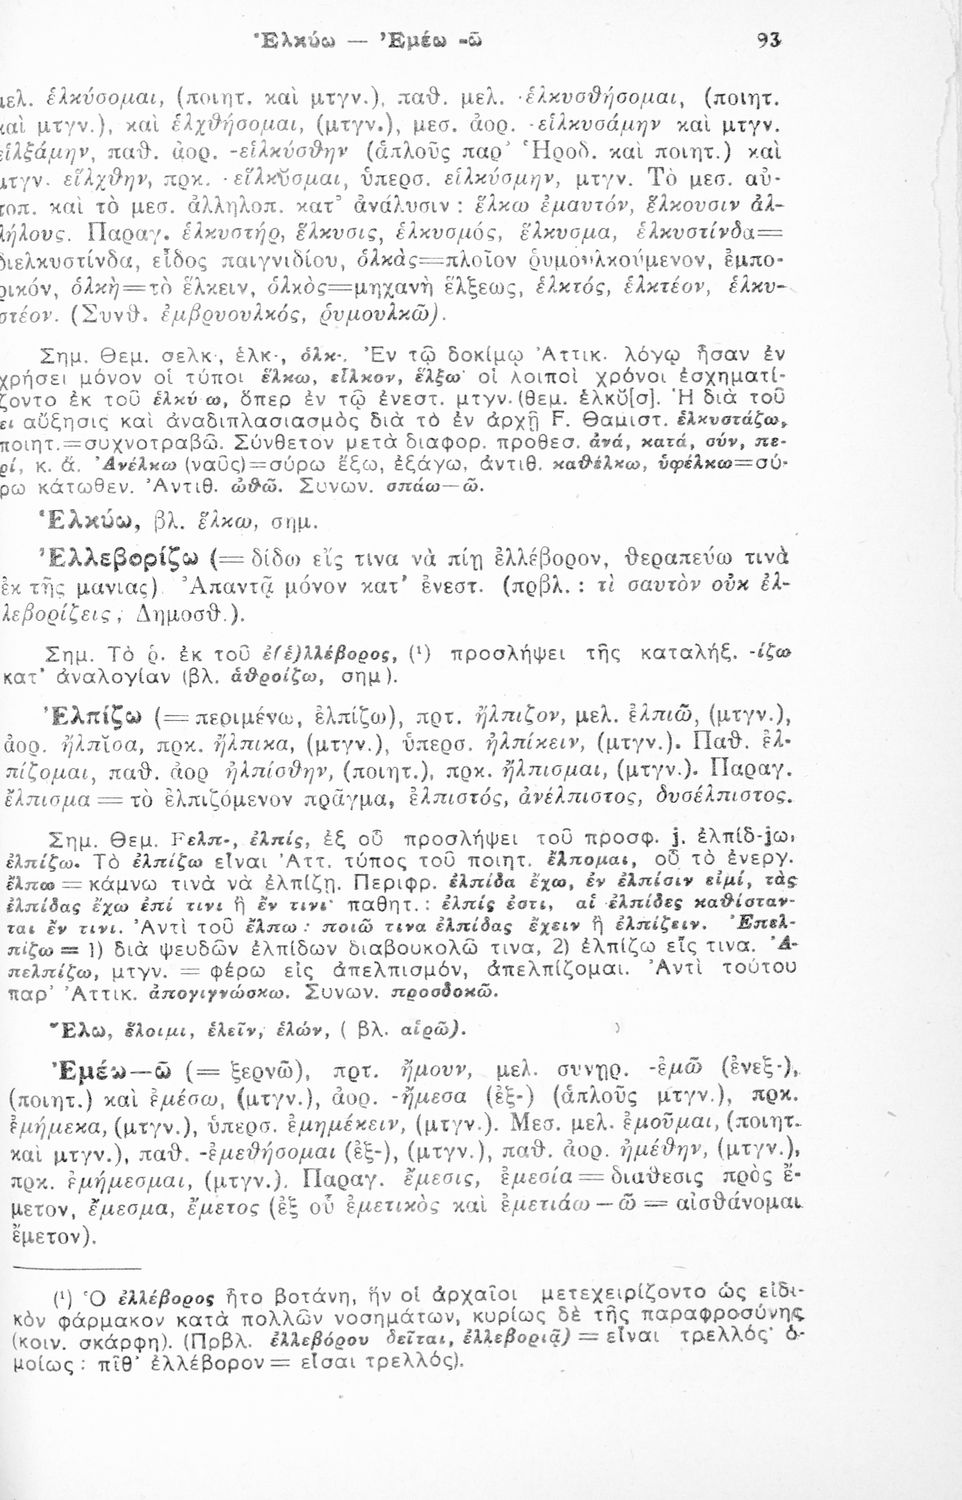 Ἑλκύω — Ἐμέω -ῶ 93
ἑλκύσομαι, (ποιητ. καὶ μτγν.), παθ. μελ. -ἑλκυσθήσομαι, (ποιητ.
μτγν.), καὶ ἑλχθήσομαι, (μτγν.), μεσ. ἀορ. -εἱλκυσάμην καὶ μτγν.
εἱλξάμην, παθ. ἀορ. -εἱλκύσθην (ἁπλοῦς παρ' Ἡροδ. καὶ ποιητ.) καὶ
μτγν. εἵλχθην, πρκ. -εἵλκῦσμαι, ὑπερσ. εἱλκύσμην, μτγν. Τὸ μεσ. αὐ-
τοπ. καὶ τὸ μεσ. ἀλληλοπ. κατ' ἀνάλυσιν : ἕλκω ἐμαυτόν, ἕλκουσιν ἀλ-
λήλους. Παραγ. ἑλκυστήρ, ἕλκυσις, ἑλκυσμός, ἕλκυσμα, ἑλκυστίνδα=
διελκυστίνδα, εἶδος παιγνιδίου, ὁλκὰς=πλοῖον ῥυμουλκούμενον, ἐμπο-
ρικόν, ὁλκὴ=τὸ ἕλκειν, ὁλκὸς=μηχανὴ ἕλξεως, ἑλκτός, ἑλκτέον, ἑλκυ-
στέον. (Συνθ. ἐμβρυουλκός, ῥυμουλκῶ).
Σημ. Θεμ. σελκ-, ἑλκ-, ὁλκ-. Ἐν τῷ δοκίμῳ Ἀττικ. λόγῳ ἦσαν ἐν
χρήσει μόνον οἱ τύποι ἕλκω, εἷλκον, ἕλξω· οἱ λοιποὶ χρόνοι ἐσχηματί-
ζοντο ἐκ τοῦ ἑλκύ ω, ὅπερ ἐν τῷ ἐνεστ. μτγν. (θεμ. ἑλκῠ[σ]. Ἡ διὰ τοῦ
ει αὔξησις καὶ ἀναδιπλασιασμὸς διὰ τὸ ἐν ἀρχῇ F. Θαμιστ. ἑλκυστάζω,
ποιητ.=συχνοτραβῶ. Σύνθετον μετὰ διαφορ. προθεσ. ἀνά, κατά, σύν, πε-
ρί, κ. ἄ. Ἀνέλκω (ναῦς)=σύρω ἔξω, ἐξάγω, ἀντιθ. καθέλκω, ὑφέλκω=σύ-
ρω κάτωθεν. Ἀντιθ. ὠθῶ. Συνων. σπάω—ῶ.
Ἑλκύω, βλ. ἕλκω, σημ.
Ἐλλεβορίζω (=δίδω εἴς τινα νὰ πίῃ ἐλλέβορον, θεραπεύω τινὰ
ἐκ τῆς μανιας) Ἀπαντᾷ μόνον κατ' ἐνεστ. (πρβλ. : τὶ σαυτὸν οὐκ ἐλ-
λεβορίζεις; Δημοσθ.).
Σημ. Τὸ ῥ. ἐκ τοῦ ἐ(ἑ)λλέβορος, (¹) προσλήψει τῆς καταλήξ. -ίζω
κατ' ἀναλογίαν (βλ. ἀθροίζω, σημ).
Ἐλπίζω (=περιμένω, ἐλπίζω), πρτ. ἤλπιζον, μελ. ἐλπιῶ, (μτγν.),
ἀορ. ἤλπῐσα, πρκ. ἤλπικα, (μτγν.), ὑπερσ. ἠλπίκειν, (μτγν.). Παθ. ἐλ-
πίζομαι, παθ. ἀορ ἠλπίσθην, (ποιητ.), πρκ. ἤλπισμαι, (μτγν.). Παραγ.
ἔλπισμα = τὸ ἐλπιζόμενον πρᾶγμα, ἐλπιστός, ἀνέλπιστος, δυσέλπιστος.
Σημ. Θεμ. Fελπ-, ἐλπίς, ἐξ οὗ προσλήψει τοῦ προσφ. j. ἐλπίδ-jω,
ἐλπίζω. Τὸ ἐλπίζω εἶναι Ἀττ. τύπος τοῦ ποιητ. ἔλπομαι, οὗ τὸ ἐνεργ.
ἔλπω = κάμνω τινὰ νὰ ἐλπίζῃ. Περιφρ. ἐλπίδα ἔχω, ἐν ἐλπίσιν εἰμί, τὰς
ἐλπίδας ἔχω ἐπί τινι ἢ ἔν τινι· παθητ. : ἐλπίς ἐστι, αἱ ἐλπίδες καθίσταν-
ται ἔν τινι. Ἀντὶ τοῦ ἔλπω : ποιῶ τινα ἐλπίδας ἔχειν ἢ ἐλπίζειν. Ἐπελ-
πίζω = 1) διὰ ψευδῶν ἐλπίδων διαβουκολῶ τινα, 2) ἐλπίζω εἴς τινα. Ἀ-
πελπίζω, μτγν. = φέρω εἰς ἀπελπισμόν, ἀπελπίζομαι. Ἀντὶ τούτου
παρ' Ἀττικ. ἀπογιγνώσκω. Συνων. προσδοκῶ.
Ἕλω, ἕλοιμι, ἑλεῖν, ἑλών, ( βλ. αἱρῶ).
Ἐμέω—ῶ (= ξερνῶ), πρτ. ἤμουν, μελ. συνῃρ. -ἐμῶ (ἐνεξ-),
(ποιητ.) καὶ ἐμέσω, (μτγν.), ἀορ. -ἤμεσα (ἐξ-) (ἁπλοῦς μτγν.), πρκ.
ἐμήμεκα, (μτγν.), ὑπερσ. ἐμημέκειν, (μτγν.). Μεσ. μελ. ἐμοῦμαι, (ποιητ.
καὶ μτγν.), παθ. -ἐμεθήσομαι (ἐξ-), (μτγν.), παθ. ἀορ. ἠμέθην, (μτγν.),
πρκ. ἐμήμεσμαι, (μτγν.). Παραγ. ἔμεσις, ἐμεσία=διάθεσις πρὸς ἔ-
μετον, ἔμεσμα, ἔμετος (ἐξ οὗ ἐμετικὸς καὶ ἐμετιάω—ῶ = αἰσθάνομαι
ἔμετον).
(¹) Ὁ ἐλλέβορος ἦτο βοτάνη, ἥν οἱ ἀρχαῖοι μετεχειρίζοντο ὡς εἰδι-
κὸν φάρμακον κατὰ πολλῶν νοσημάτων, κυρίως δὲ τῆς παραφροσύνης
(κοιν. σκάρφη). (Πρβλ. ἐλλεβόρου δεῖται, ἐλλεβοριᾷ) = εἶναι τρελλός· ὁ-
μοίως : πῖθ' ἐλλέβορον = εἶσαι τρελλός).